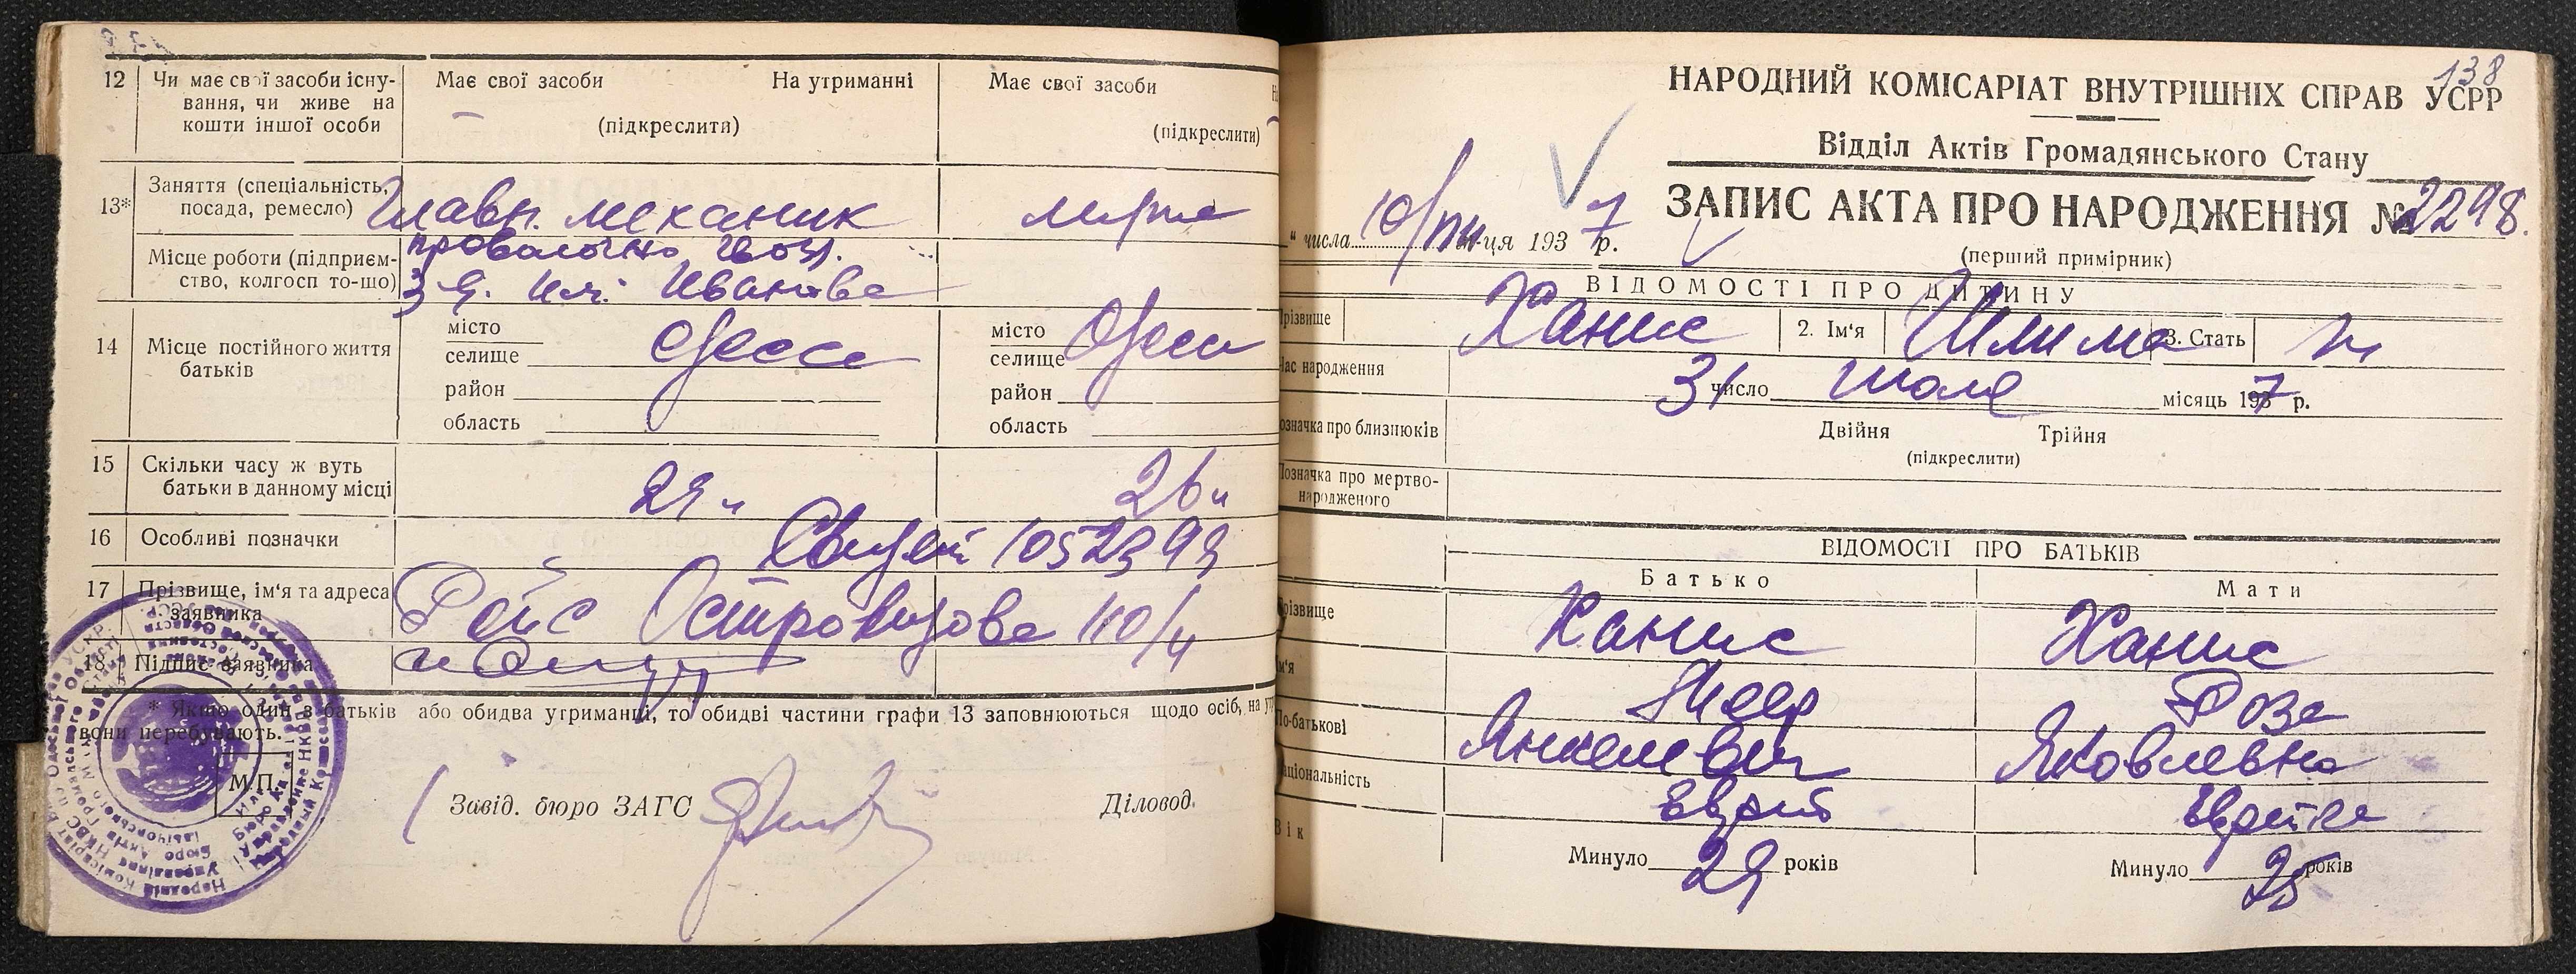 12 Чи має свої засоби існу-
вання, чи живе на
кошти іншої особи
Має свої засоби На утриманні
(підкреслити)
Має свої засоби
(підкреслити)
13* Заняття (спеціальність,
посада, ремесло)
Главн. механик
Місце роботи (підприєм-
ство, колгосп то-що)
проволочно гвозд.
З-д. им. Иванова
14 Місце постійного життя
батьків
місто
селище Одесса
район
область
місто
селище Одесса
район
область
15 Скільки часу ж вуть
батьки в данному місці
29 л
26 л
16 Особливі позначки
17 Прізвище, ім'я та адреса
заявника
Островидова 110/4
18 Підпис заявника
* Якщо один з батьків або обидва утриманні, то обидві частини графи 13 заповнюються щодо осіб, на
вони перебувають.
М.П.
Завід. бюро ЗАГС
Діловод.
138
НАРОДНИЙ КОМІСАРІАТ ВНУТРІШНІХ СПРАВ УСРР
Відділ Актів Громадянського Стану
ЗАПИС АКТА ПРО НАРОДЖЕННЯ № 2298.
(перший примірник)
" числа 10/VIII м-ця 1937 р.
ВІДОМОСТІ ПРО ДИТИНУ
Прізвище Ханис 2. Ім'я 3. Стать
Час народження 31 число июля місяць 1937 р.
Позначка про близнюків Двійня Трійня
(підкреслити)
Позначка про мертво-
народженого
ВІДОМОСТІ ПРО БАТЬКІВ
Батько Мати
Прізвище Ханис Ханис
Ім'я Меер Роза
По-батькові Янкелевич Яковлевна
Національність Еврей Еврейка
Вік Минуло 29 років Минуло 25 років